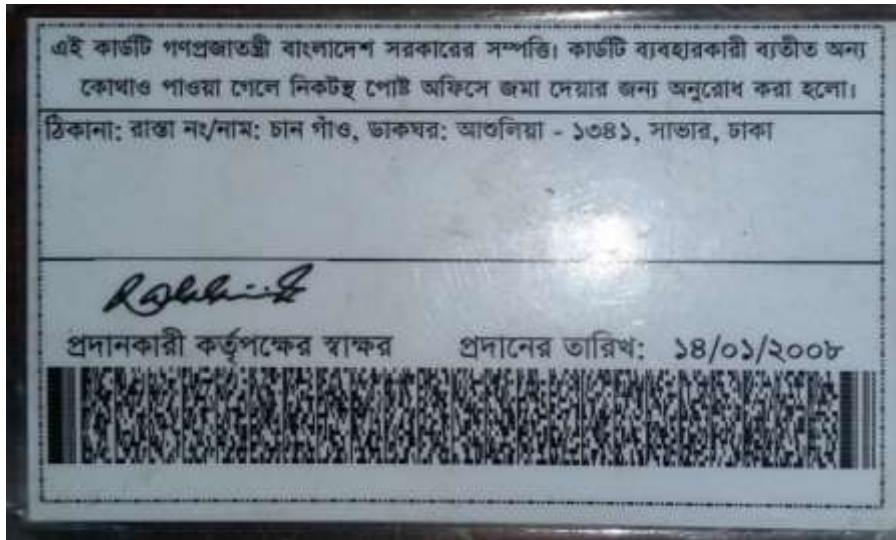 এই কার্ডটি গণপ্রজাতন্ত্রী বাংলাদেশ সরকারের সম্পত্তি। কার্ডটি ব্যবহারকারী ব্যতীত অন্য
কোথাও পাওয়া গেলে নিকটস্থ পোষ্ট অফিসে জমা দেয়ার জন্য অনুরোধ করা হলো।
ঠিকানা: রাস্তা নং/নাম: চান গাঁও, ডাকঘর: আশুলিয়া - ১৩৪১, সাভার, ঢাকা
প্রদানকারী কর্তৃপক্ষের স্বাক্ষর প্রদানের তারিখ: ১৪/০১/২০০৮